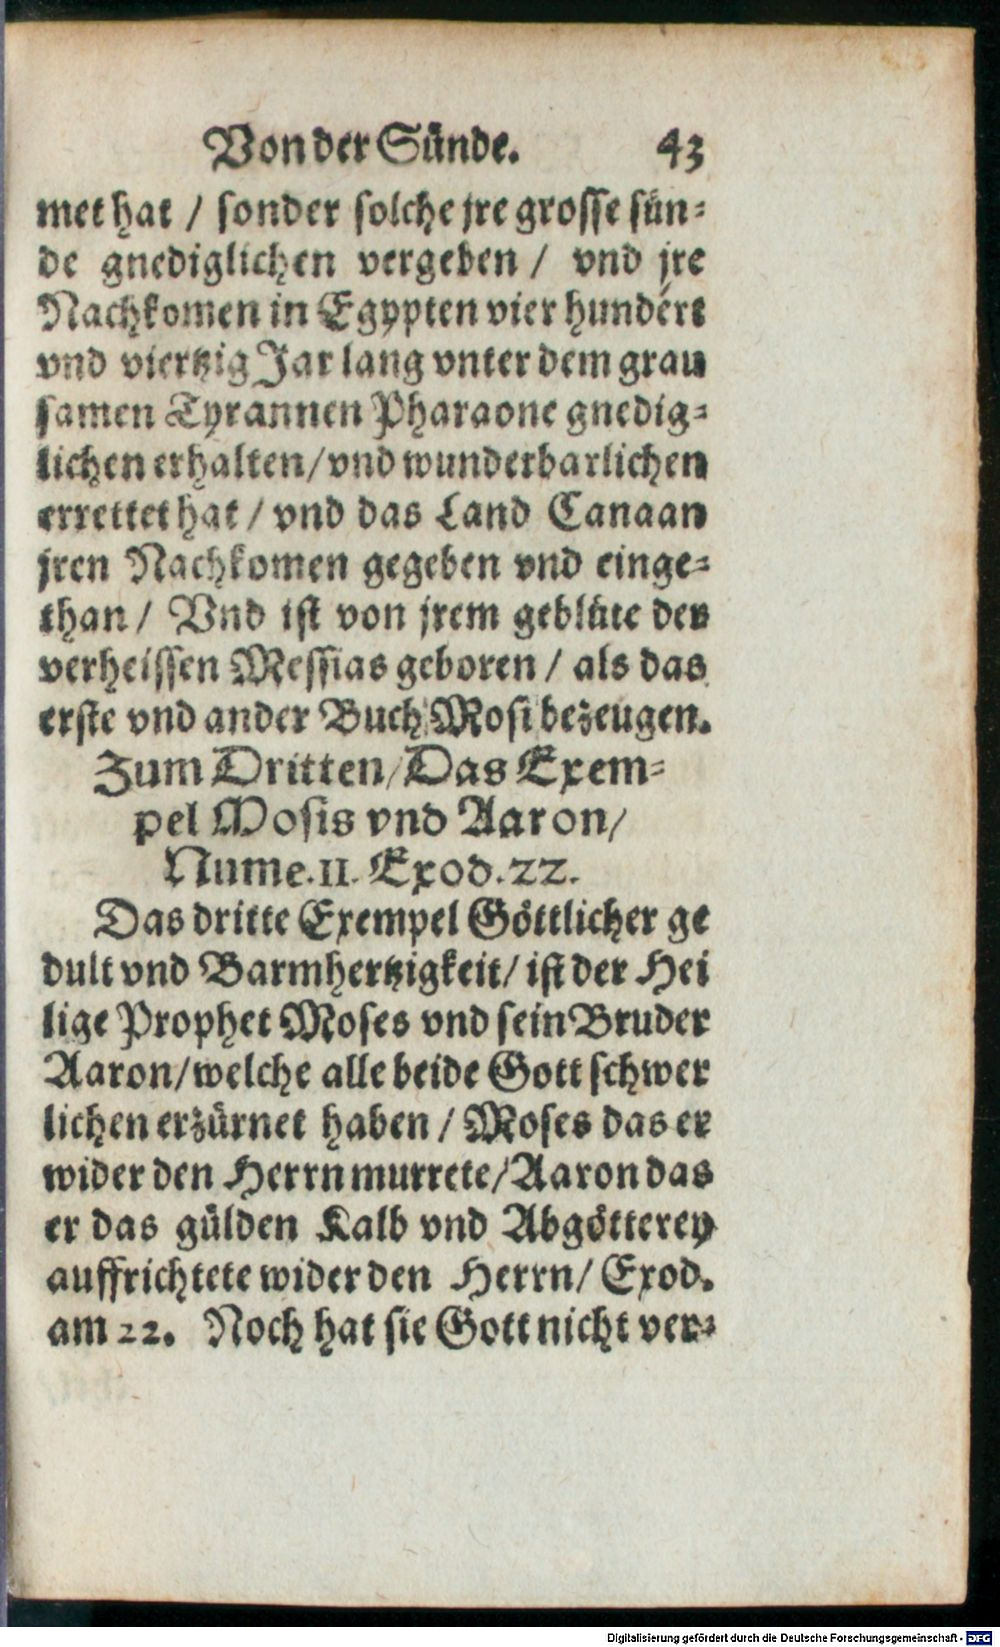 Von der Sünde. 43
met hat / sonder solche jre grosse sün⸗
de gnediglichen vergeben / vnd jre
Nachkomen in Egypten vier hundert
vnd viertzig Jar lang vnter dem grau
samen Tyrannen Pharaone gnedig⸗
lichen erhalten / vnd wunderbarlichen
errettet hat / vnd das Land Canaan
jren Nachkomen gegeben vnd einge⸗
than / Vnd ist von jrem geblüte der
verheissen Messias geboren / als das
erste vnd ander Buch Mosi bezeugen.
Zum Dritten / Das Exem⸗
pel Mosis vnd Aaron /
Nume. 11. Exod. 22.
Das dritte Exempel Göttlicher ge
dult vnd Barmhertzigkeit / ist der Hei
lige Prophet Moses vnd sein Bruder
Aaron / welche alle beide Gott schwer
lichen erzürnet haben / Moses das er
wider den Herrn murrete / Aaron das
er das gülden Kalb vnd Abgötterey
auffrichtete wider den Herrn / Exod.
am 22. Noch hat sie Gott nicht ver⸗
Digitalisierung gefördert durch die Deutsche Forschungsgemeinschaft - DFG